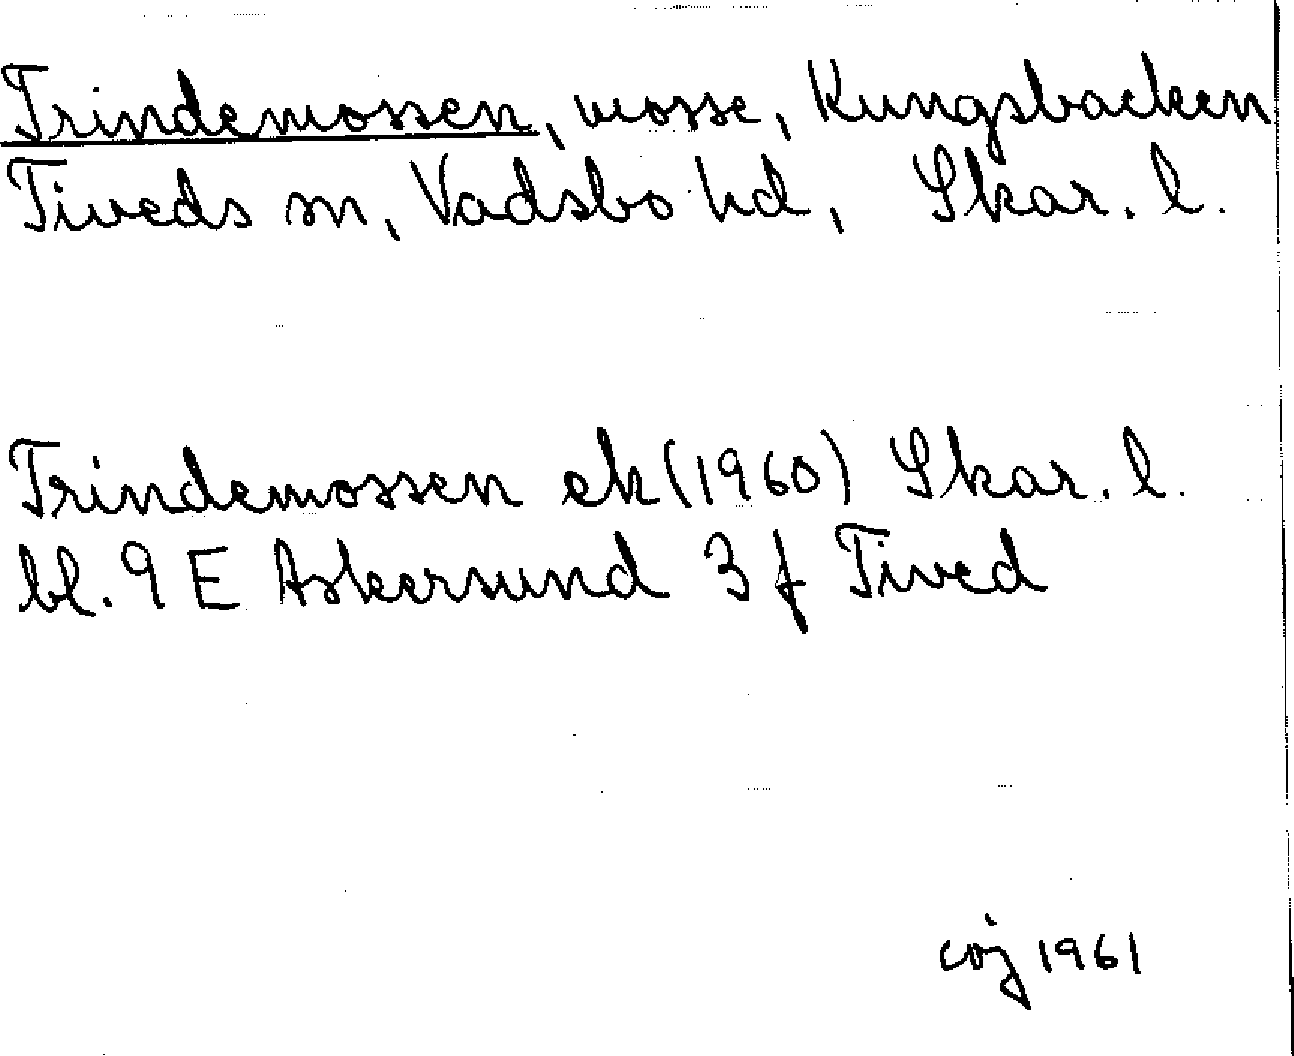 Trindemossen, mosse, Kungsbacken
Tiveds sn, Vadsbo hd, Skar. l.
Trindemossen ek (1960) Skar. l.
bl. 9 E Askersund 3 f Tived
1961